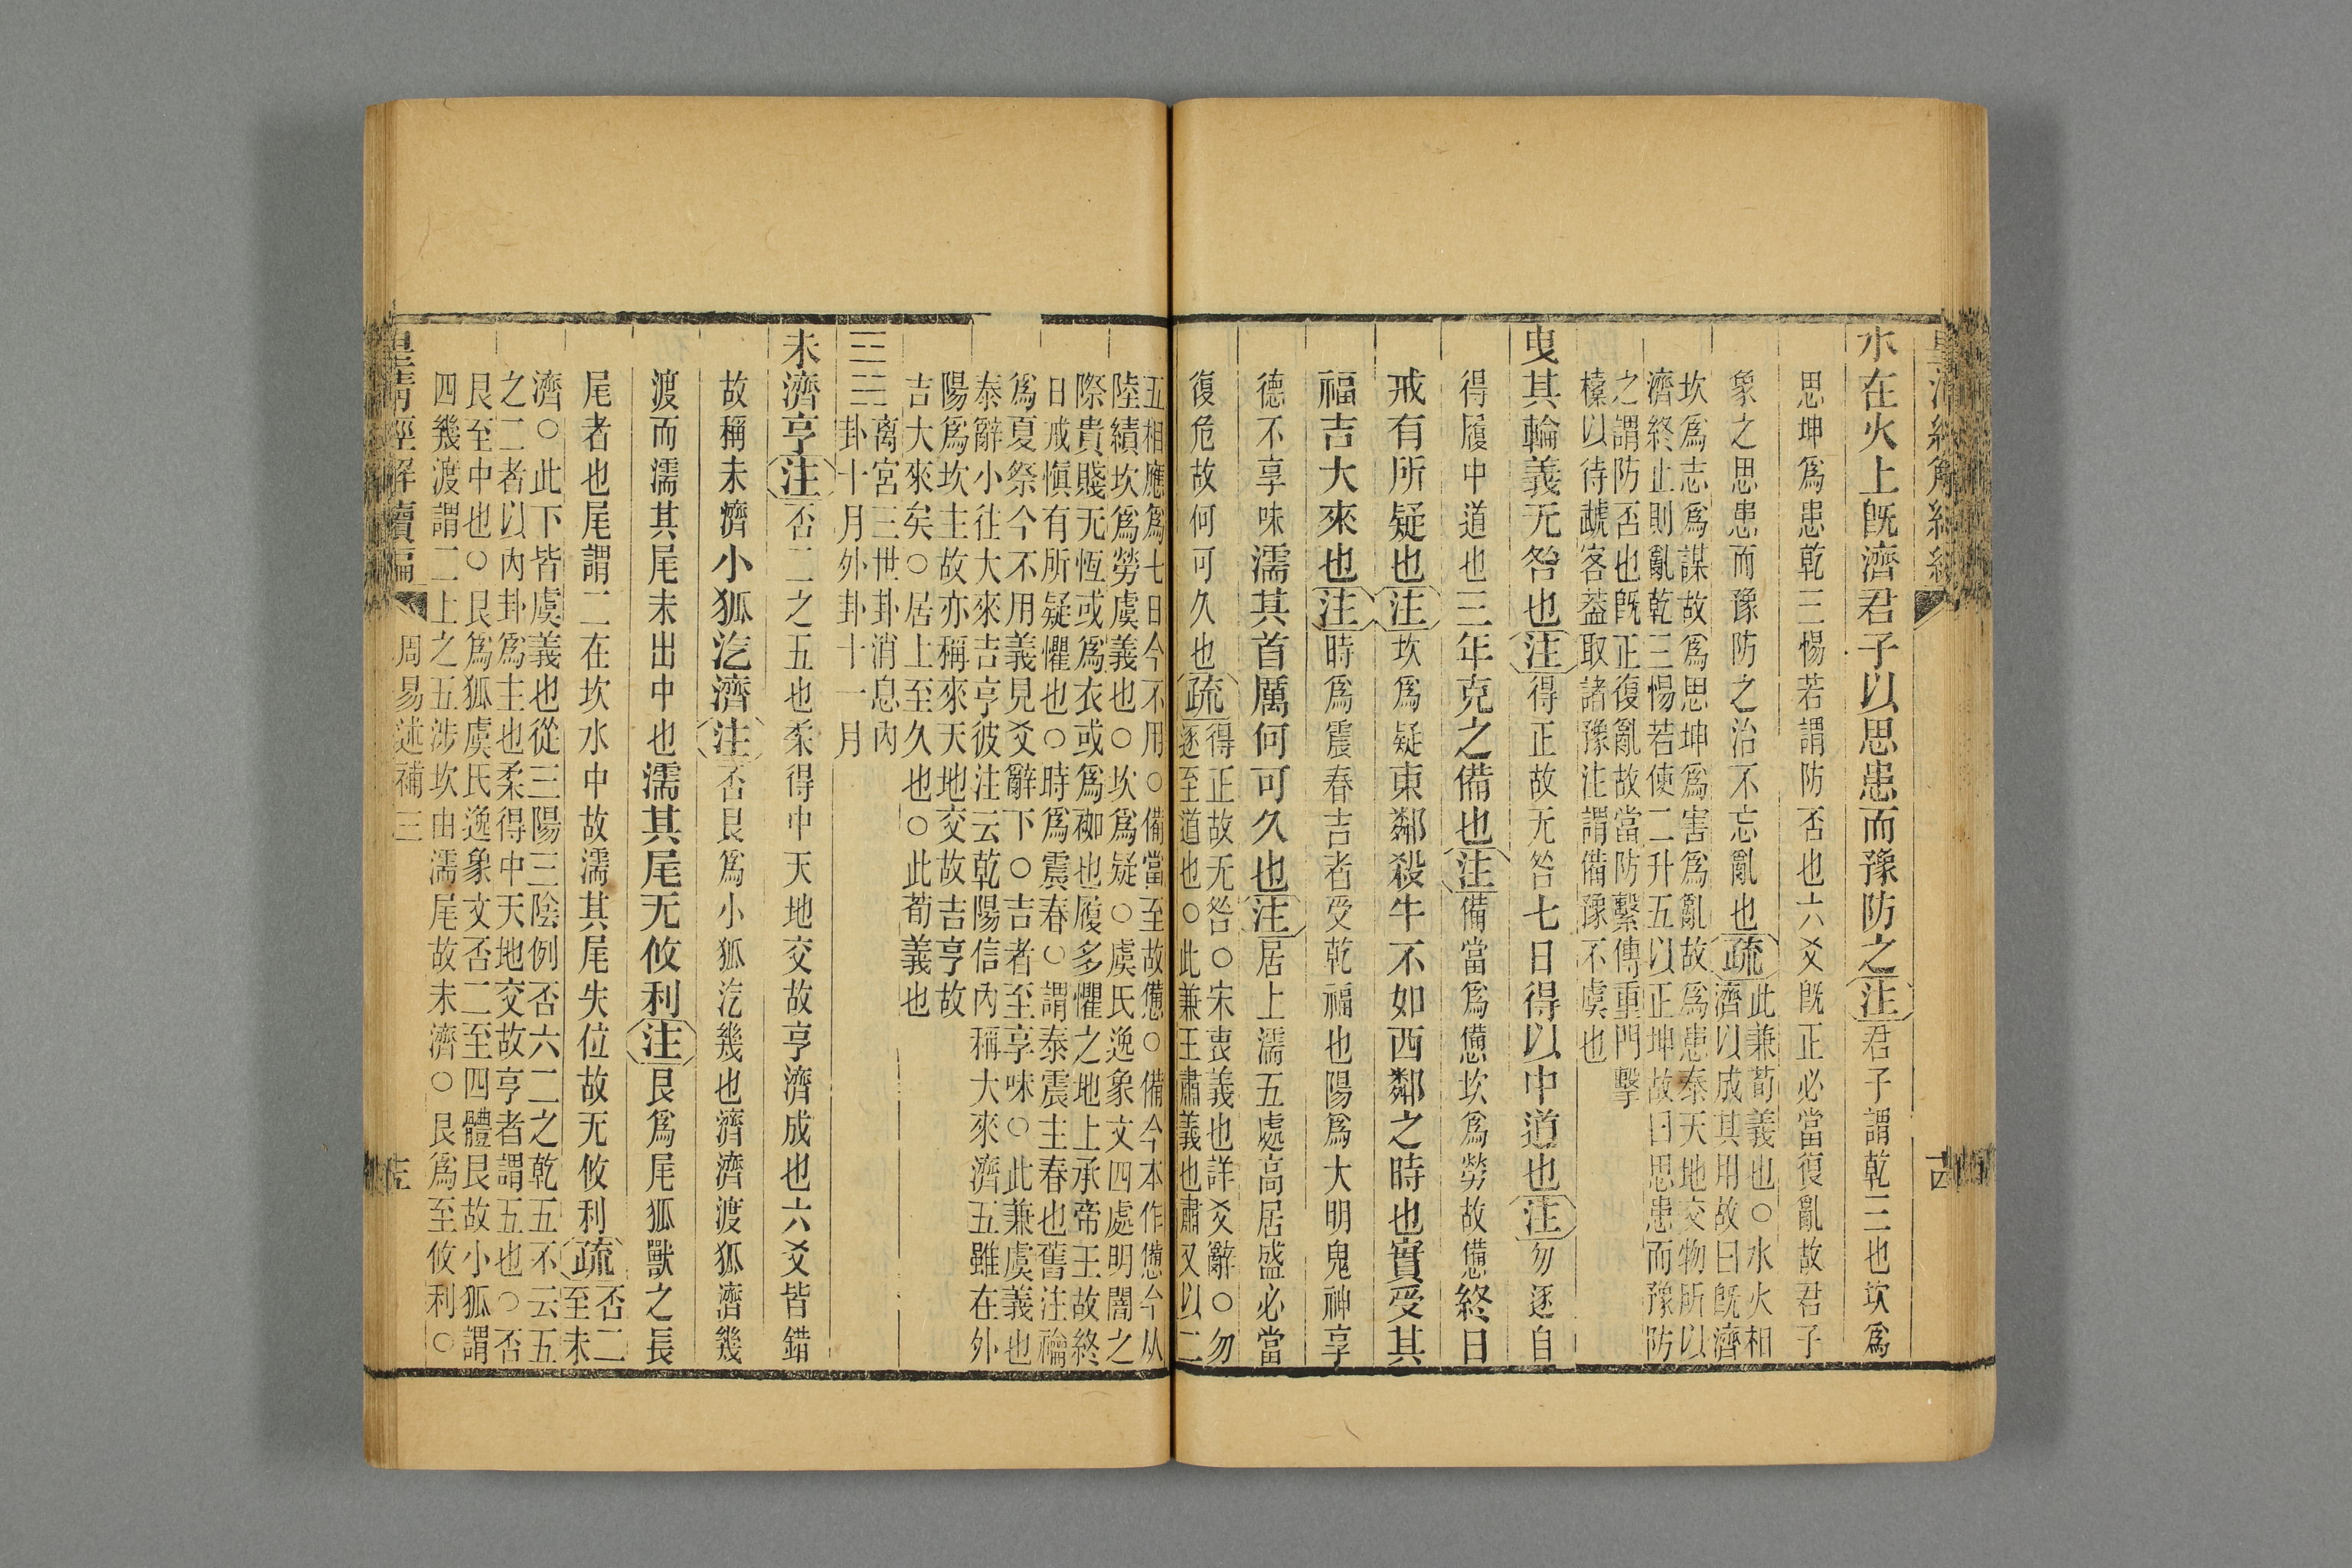 水在火上旣濟君子以思患而豫防之注君子謂乾三也坎爲
思坤爲患乾三惕若謂防否也六爻旣正必當復亂故君子
象之思患而豫防之治不忘亂也疏此兼荀義也○水火相
濟以成其用故曰旣濟
坎爲志爲謀故爲思坤爲害爲亂故爲患泰天地交物所以
濟終止則亂乾三惕若使二升五以正坤故曰思患而豫防
之謂防否也旣正復亂故當防繫傳重門擊
㯓以待虣客葢取諸豫注謂備豫不虞也
曳其輪義无咎也注得正故无咎七日得以中道也注勿逐自
得履中道也三年克之備也注備當爲憊坎爲勞故憊終日
戒有所疑也注坎爲疑東鄰殺牛不如西鄰之時也實受其
福吉大來也注時爲震春吉者受乾福也陽爲大明鬼神享
德不享味濡其首厲何可久也注居上濡五處高居盛必當
復危故何可久也疏得正故无咎○宋衷義也詳爻辭○勿
逐至道也○此兼王肅義也肅又以二
五相應爲七日今不用○備當至故憊○備今本作憊今从
陸績坎爲勞虞義也○坎爲疑○虞氏逸象文四處明闇之
際貴賤无恆或爲衣或爲袽也履多懼之地上承帝王故終
日戒愼有所疑懼也○時爲震春○謂泰震主春也舊注禴
爲夏祭今不用義見爻辭下○吉者至享味○此兼虞義也
泰辭小往大來吉亨彼注云乾陽信內稱大來濟五雖在外
陽爲坎主故亦稱來天地交故吉亨故
吉大來矣○居上至久也○此荀義也
離宮三世卦消息內
卦十月外卦十一月
未濟亨注否二之五也柔得中天地交故亨濟成也六爻皆錯
故稱未濟小狐汔濟注否艮爲小狐汔幾也濟濟渡狐濟幾
渡而濡其尾未出中也濡其尾无攸利注艮爲尾狐獸之長
尾者也尾謂二在坎水中故濡其尾失位故无攸利疏否二
至未
濟○此下皆虞義也從三陽三陰例否六二之乾五不云五
之二者以內卦爲主也柔得中天地交故亨者謂五也○否
艮至中也○艮爲狐虞氏逸象文否二至四體艮故小狐謂
四幾渡謂二上之五涉坎由濡尾故未濟○艮爲至攸利○
皇淸經解續編 周易述補三